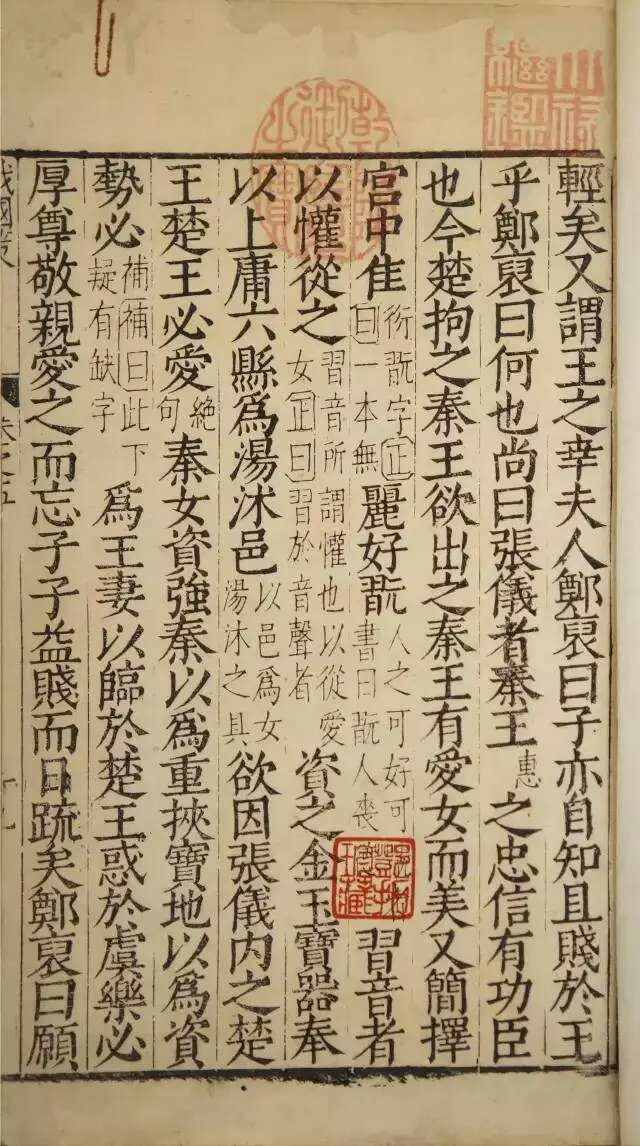 天祿繼鑑
乾隆御覽之寶
輕矣又謂王之幸夫人鄭褏曰子亦自知且賤於王
乎鄭褏曰何也尚曰張儀者秦王惠之忠信有功臣
也今楚拘之秦王欲出之秦王有愛女而美又簡擇
宫中隹衍翫字正曰一本無麗好翫人之可好可書曰翫人喪習音者
以懽從之習音所謂懽也以從愛女正曰習於音聲者資之金玉寶器奉
以上庸六縣爲湯沐邑以邑爲女湯沐之具欲因張儀内之楚
王楚王必愛絕句秦女資強秦以爲重挾寶地以爲資
勢必補補曰此下疑有缺字爲王妻以臨於楚王惑於虞樂必
厚尊敬親愛之而忘子子益賤而日疏矣鄭褏曰願